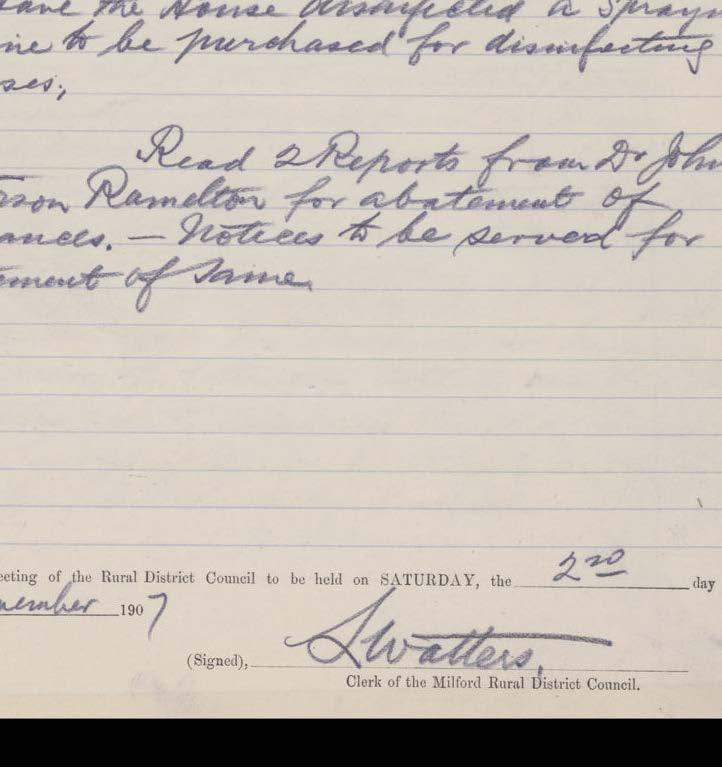 ave the House disinfected a Spray
ne to be purchased for disinfecting
ses,
Read 2 Reports from Dr John
rson Ramelton for abatement of
ances. — Notices to be served for
ement of Same.
eeting of the Rural District Council to be held on SATURDAY, the 2nd day
vember 1907
(Signed), S Watters,
Clerk of the Milford Rural District Council.